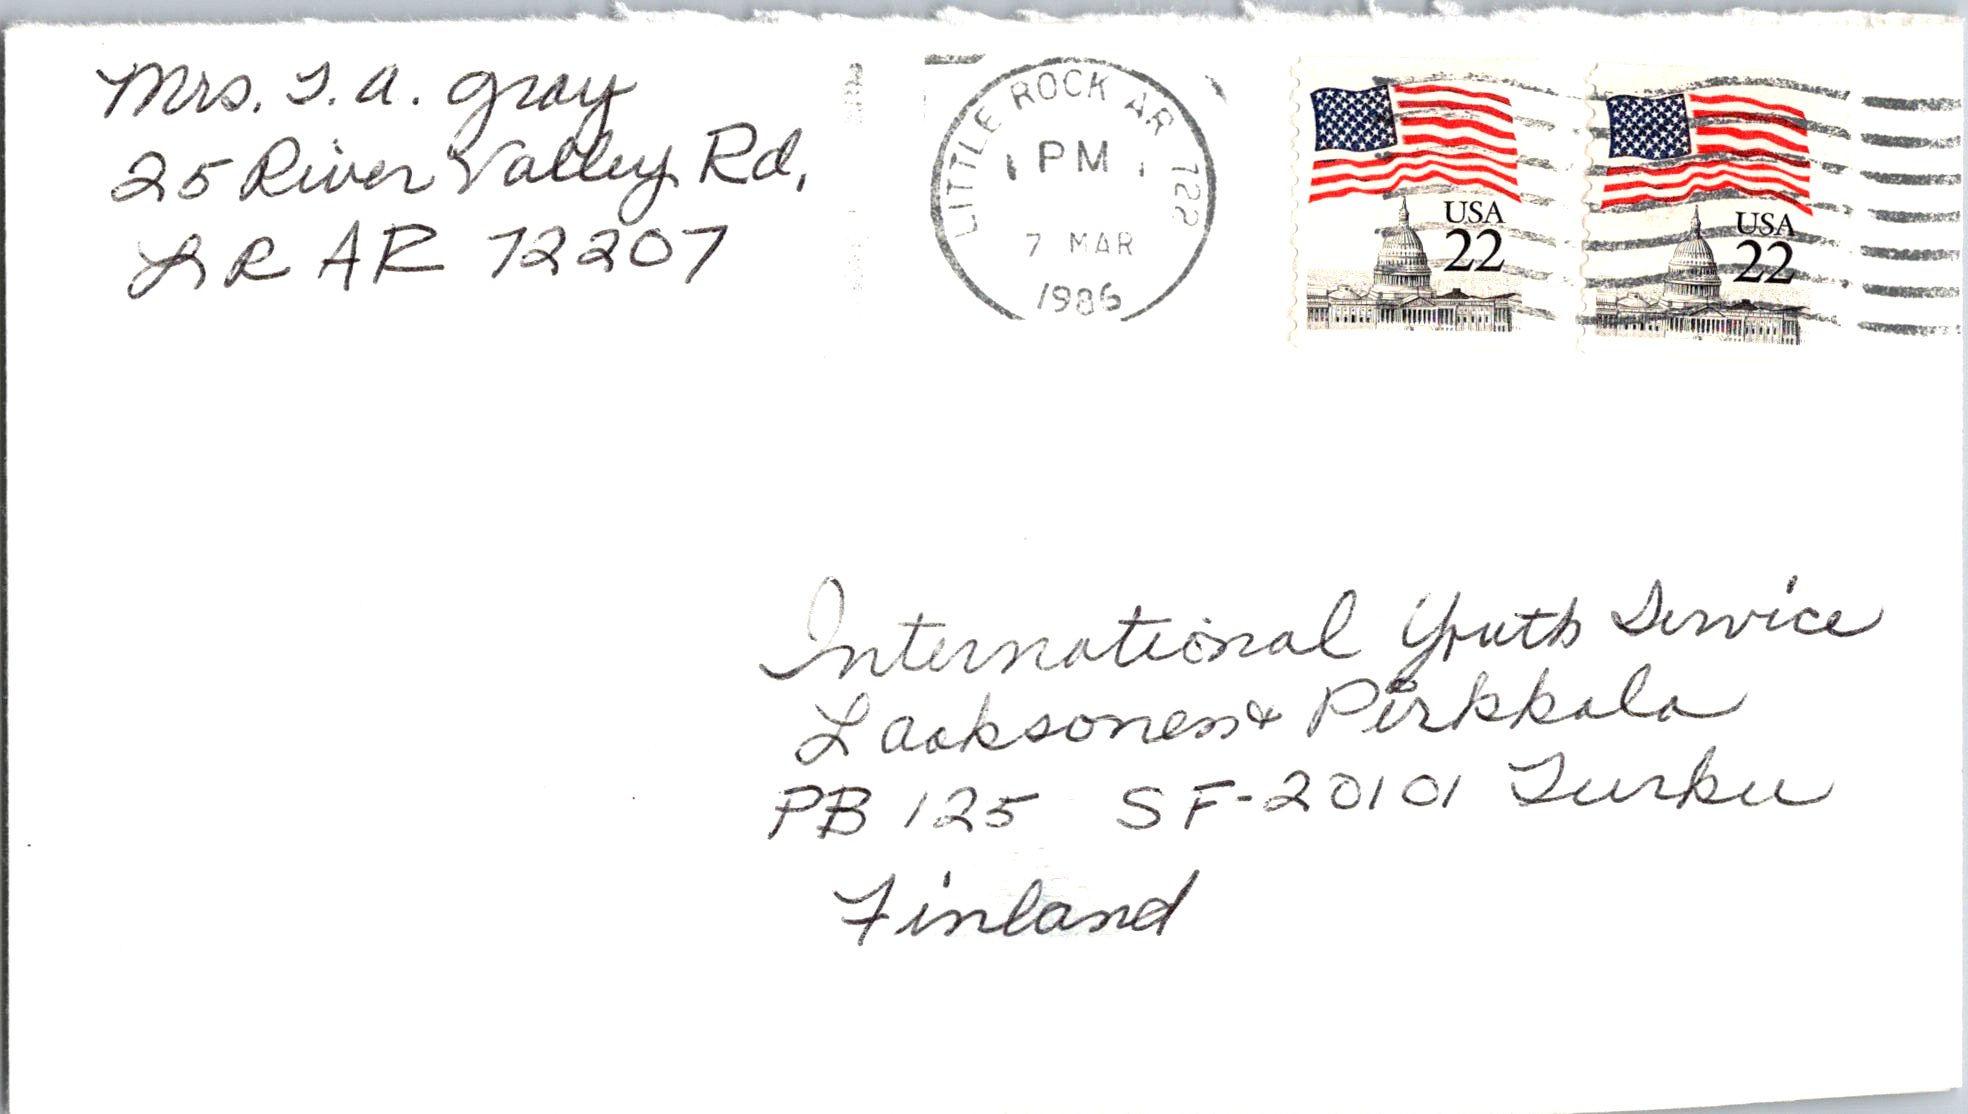 Mrs. T. A. Gray
25 River Valley Rd,
LR AR 72207
LITTLE ROCK AR 722
PM
7 MAR
1986
USA
22
USA
22
International Youth Service
Laaksonen & Pirkkala
PB 125 SF-20101 Turku
Finland